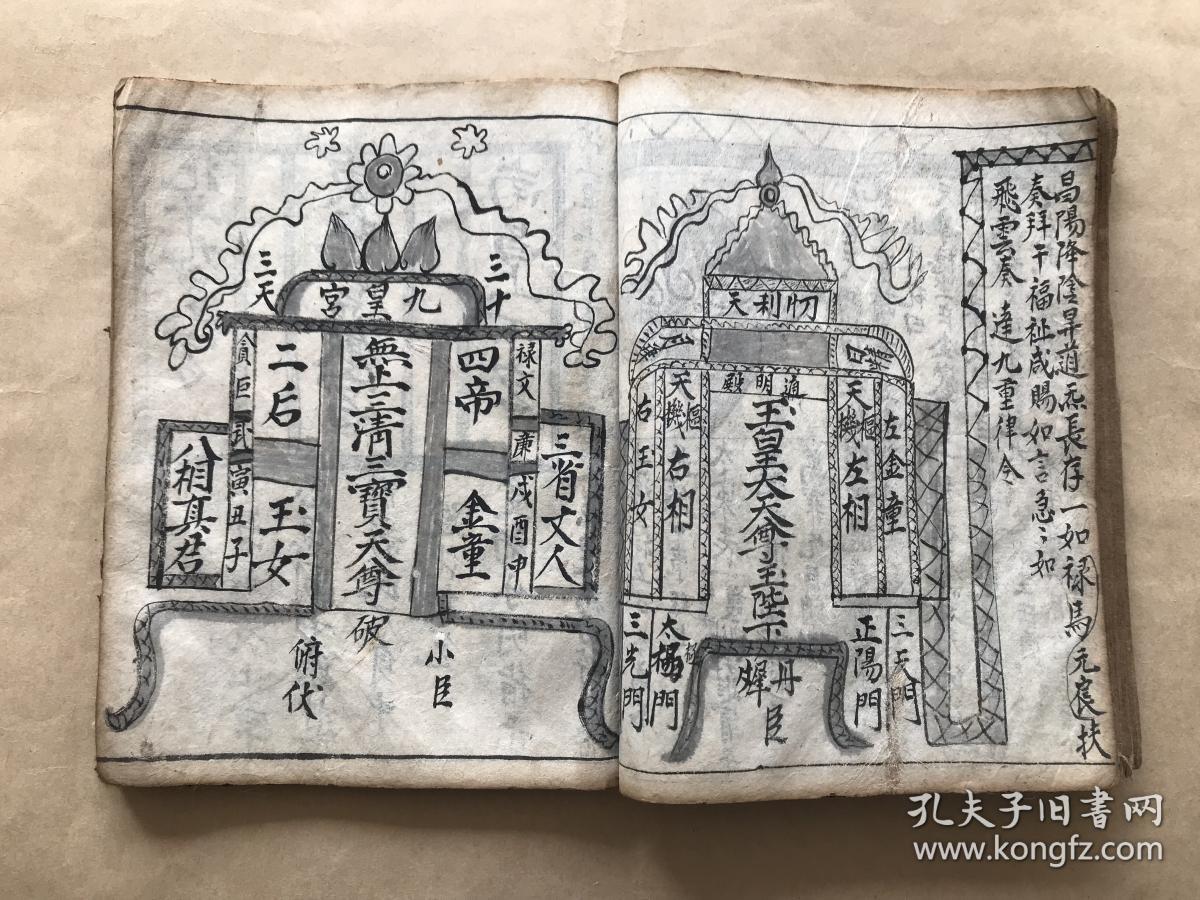 昌陽降陰昇道炁長存一如禄馬元良扶
奏拜干福祉咸賜如言急〻如
飛雲奏達九重律令
忉利天
通明殿
玉皇大天尊玉陛下
左金童
天機左相
樞
天機右相
樞
右王女
三天門
正陽門
太極門
三光門
丹墀
臣
九皇宮
三十
三天
無上三清三寶天尊
破
四帝
金童
二后
玉女
禄文廉戌酉申
貪巨武寅丑子
三省丈人
八相真君
小臣
俯伏
孔夫子旧书网
www.kongfz.com